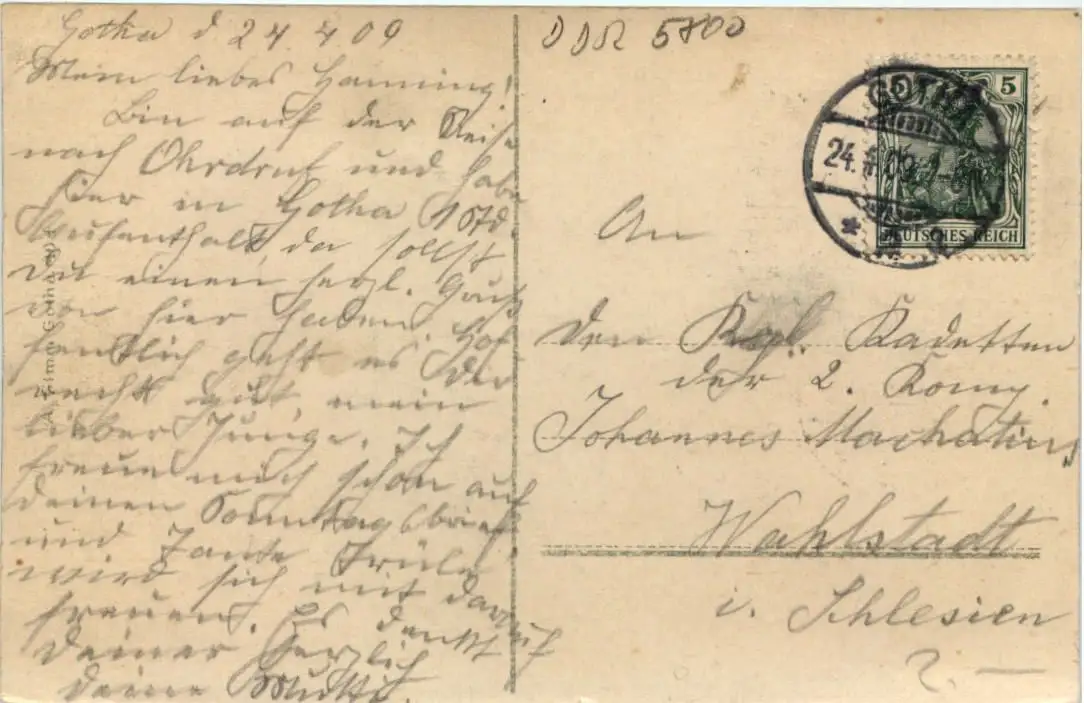 Gotha d 24 4 09
Mein liebes Hanning!
Bin auf der Reise
nach Ohrdruf und habe
hier in Gotha 1 Std.
Aufenthalt, da sollst
du einen herzl. Gruß
von hier haben. Hof-
fentlich geht es Dir
recht gut, mein
lieber Junge. Ich
freue mich schon auf
deinen Sonntagsbrief
und Tante Trüle
wird sich mit darauf
freuen. Es denkt
deiner herzlich
deine Mutti.
DDR 5800
GOTHA
24. 4. 09.
5
5
DEUTSCHES REICH
An
den Kgl. Kadetten
der 2. Komp.
Johannes Machatius
Wahlstadt
i. Schlesien